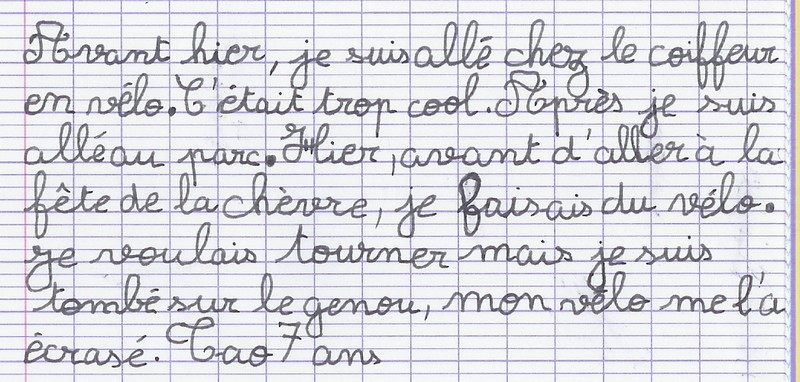 Avant hier, je suis allé chez le coiffeur
en vélo. C'était trop cool. Après je suis
allé au parc. Hier, avant d'aller à la
fête de la chèvre, je faisais du vélo.
Je voulais tourner mais je suis
tombé sur le genou, mon vélo me l'a
écrasé. Tao 7 ans